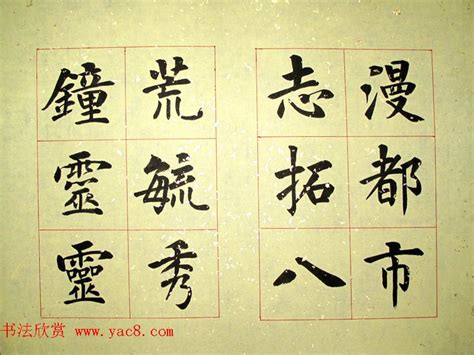 漫都市
志拓八
荒毓秀
鐘靈靈
书法欣赏 www.yac8.com